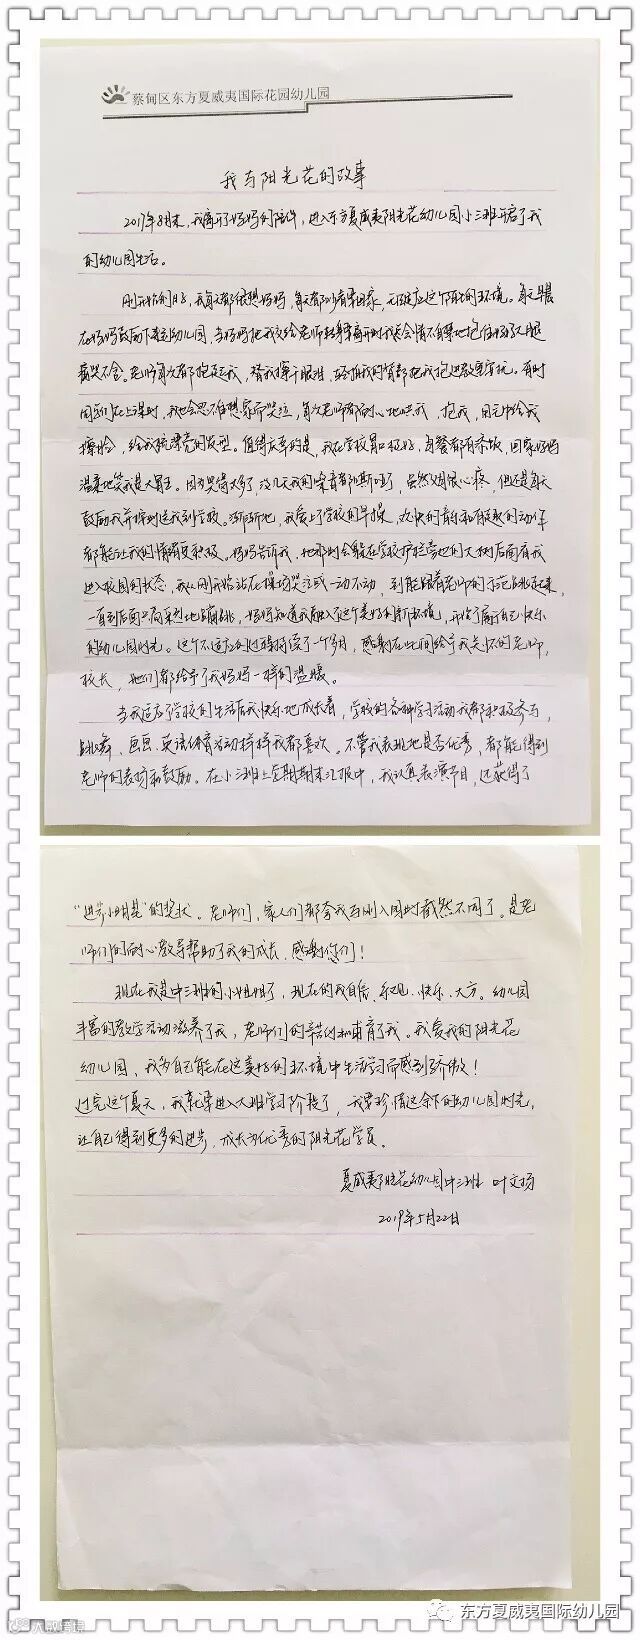 蔡甸区东方夏威夷国际花园幼儿园
我与阳光花的故事
2017年8月末，我离开了妈妈的陪伴，进入东方夏威夷阳光花幼儿园小三班开启了我
的幼儿园生活。
刚开始的日子，我每天都很想妈妈，每天都吵着要回家，无法适应这个陌生的环境。每天早晨
在妈妈鼓励下来到幼儿园，当妈妈把我交给老师转身离开时我总会情不自禁地抱住妈妈大腿
着哭不舍。老师每次都抱起我，替我擦干眼泪，轻拍我的背部把我抱进教室安抚。有时
同学们在上课时，我也会思念想家而哭泣，每次老师都耐心地哄我，抱我，园长给我
擦脸，给我梳漂亮的发型。值得庆幸的是，我在学校胃口极好，每餐都有添饭，回家妈妈
温柔地笑我是大胃王。因为哭得太多了，没几天我的嗓音都嘶哑了，虽然妈妈很心疼，但还是每天
鼓励我并按时送我到学校。渐渐地，我爱上了学校的早操，欢快的音乐和有趣的动作
都能让我的情绪变积极。妈妈告诉我，她那时会躲在学校护栏旁边的大树后面看我
进入校园的状态，我从刚开始站在操场哭泣或一动不动，到能跟着老师的示范跳起来，
一直到后面兴高采烈地蹦跳，妈妈知道我融入了这个美好的新环境，开始了属于自己快乐
的幼儿园时光。这个不适应的过程持续了一个多月，感谢在此期间给予我关怀的老师，
校长，她们都给予了我妈妈一样的温暖。
当我适应了学校的生活后我快乐地成长着，学校的各种学习活动我都积极参与，
跳舞、画画、英语体育活动样样我都喜欢。不管我表现地是否优秀，都能得到
老师的表扬和鼓励。在小三班上学期期末汇报中，我认真表演节目，还获得了
“进步小明星”的奖状。老师们，家人们都夸我与刚入园时截然不同了。是老
师们的耐心教导帮助了我的成长，感谢你们！
现在我是中三班的小姐姐了，现在的我自信、乐观、快乐、大方。幼儿园
丰富的教学活动滋养了我，老师们的辛苦付出哺育了我。我爱我的阳光花
幼儿园，我为自己能在这美好的环境中生活学习而感到骄傲！
过完这个夏天，我就要进入大班学习阶段了，我要珍惜这余下的幼儿园时光，
让自己得到更多的进步，成长为优秀的阳光花学员。
夏威夷阳光花幼儿园中三班 叶文扬
2019年5月22日
东方夏威夷国际幼儿园